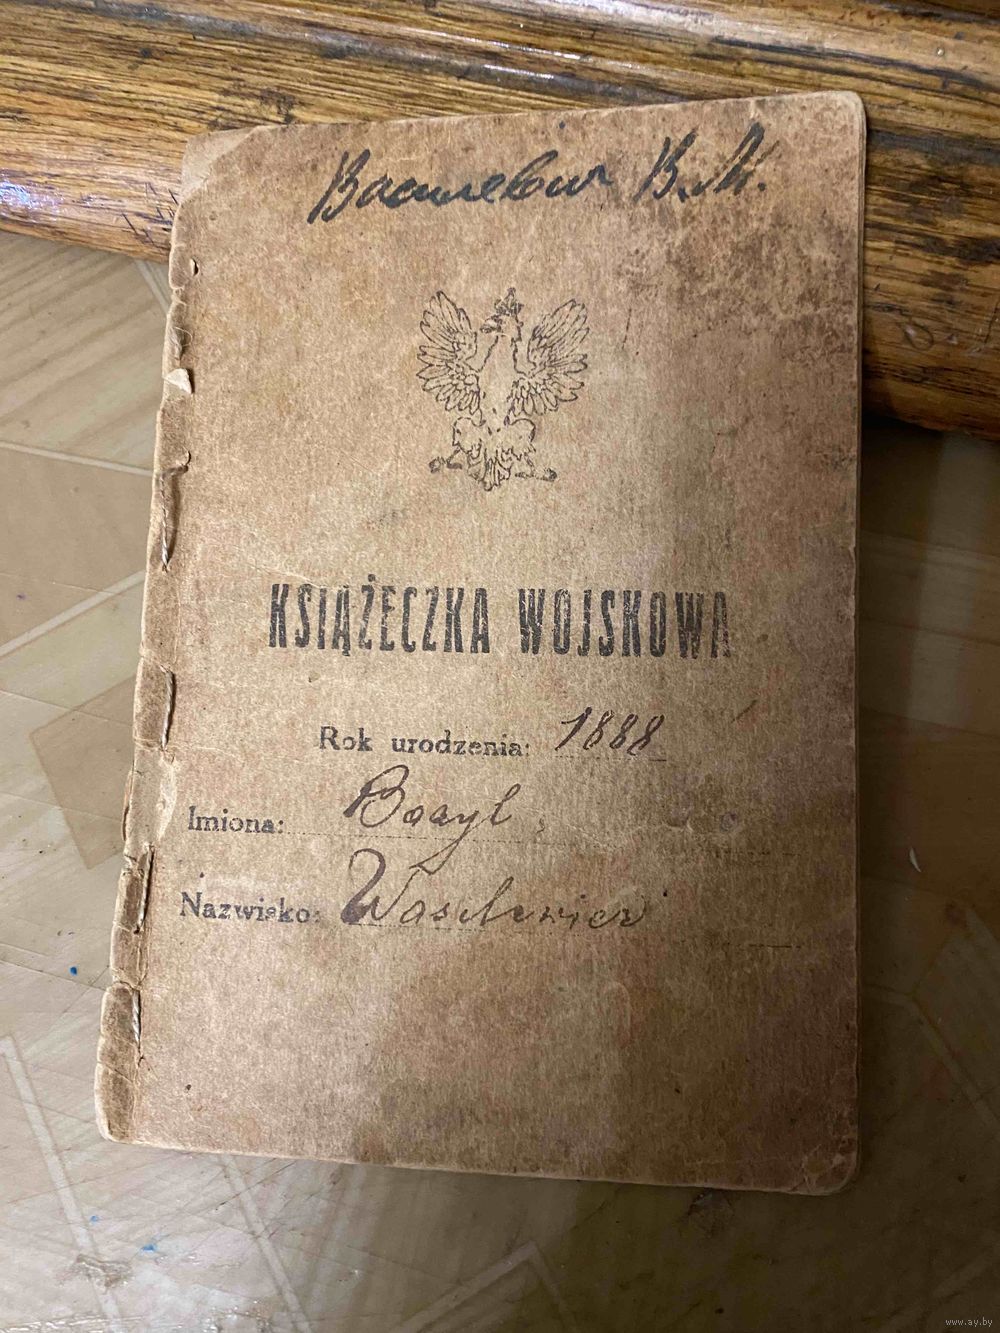 Василевич В.М.
KSIĄŻECZKA WOJSKOWA
Rok urodzenia: 1888
Imiona: Bazyl
Nazwisko: Wasilewicz
www.ay.by